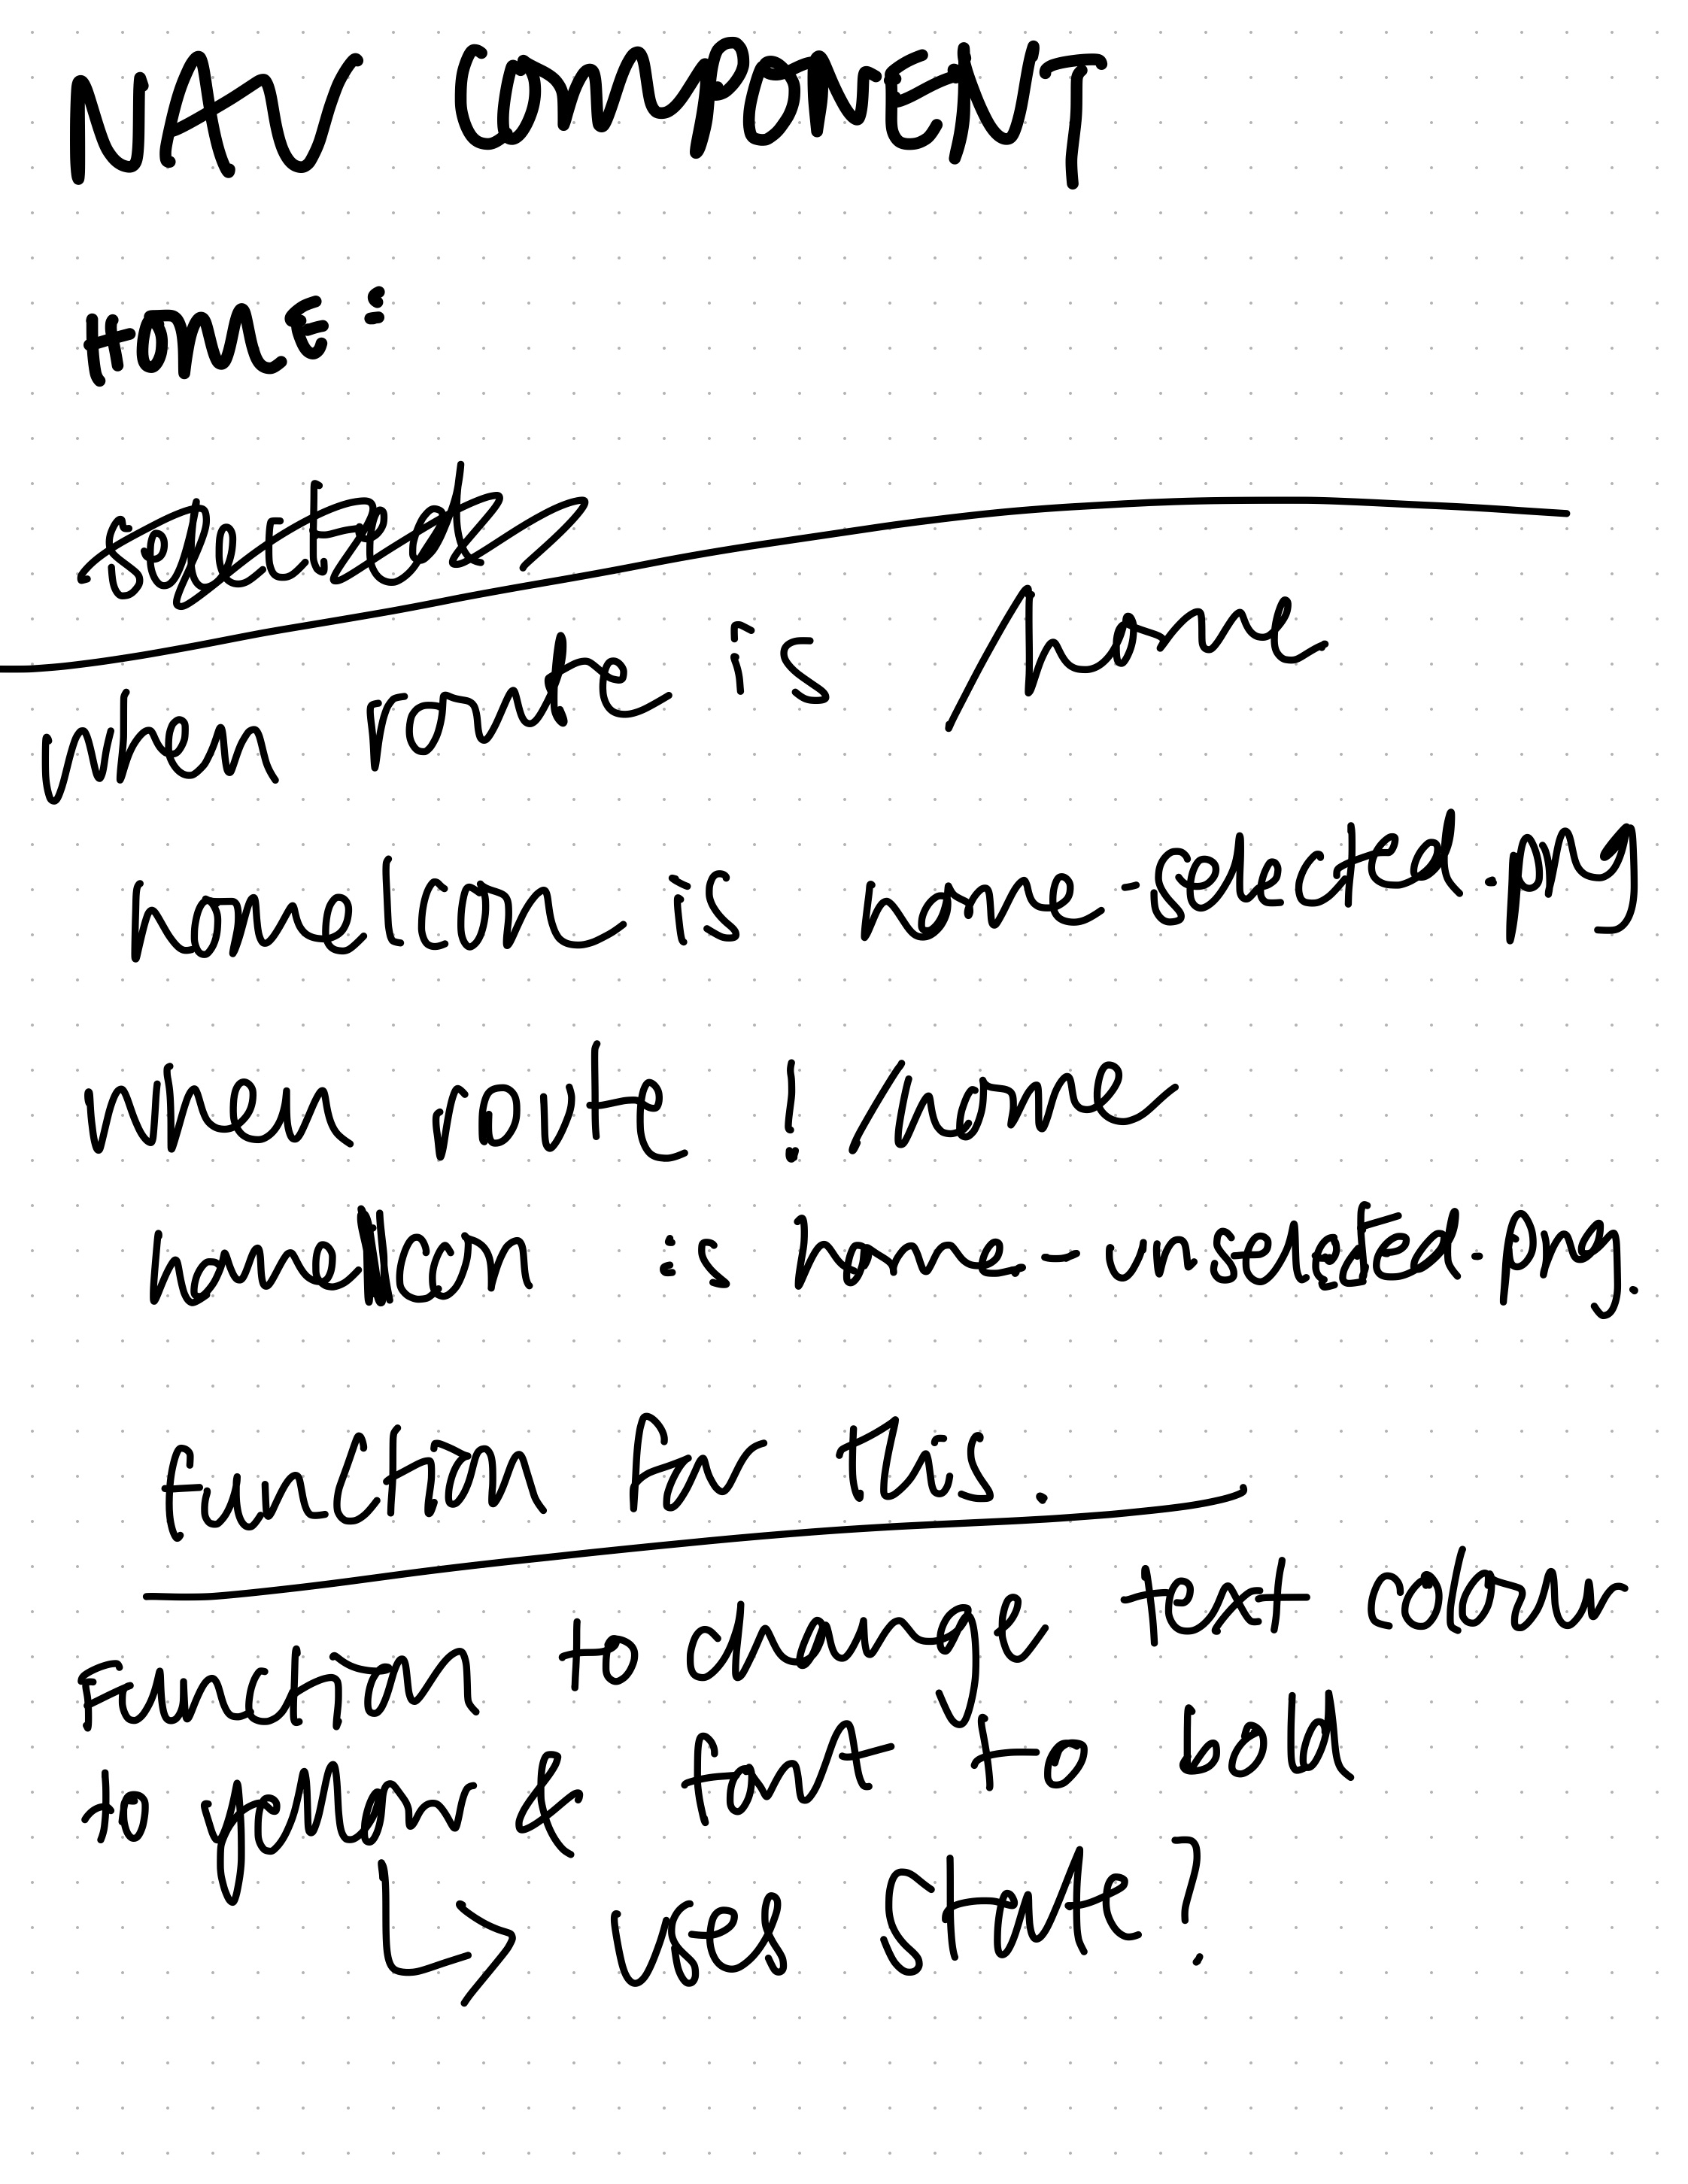 NAV COMPONENT
HOME:
when route is /home
homeIcon is home-selected.png
when route ! /home
homeIcon is home-unselected.png.
function for this.
Function to change text colour
to & font to bold
uses state?